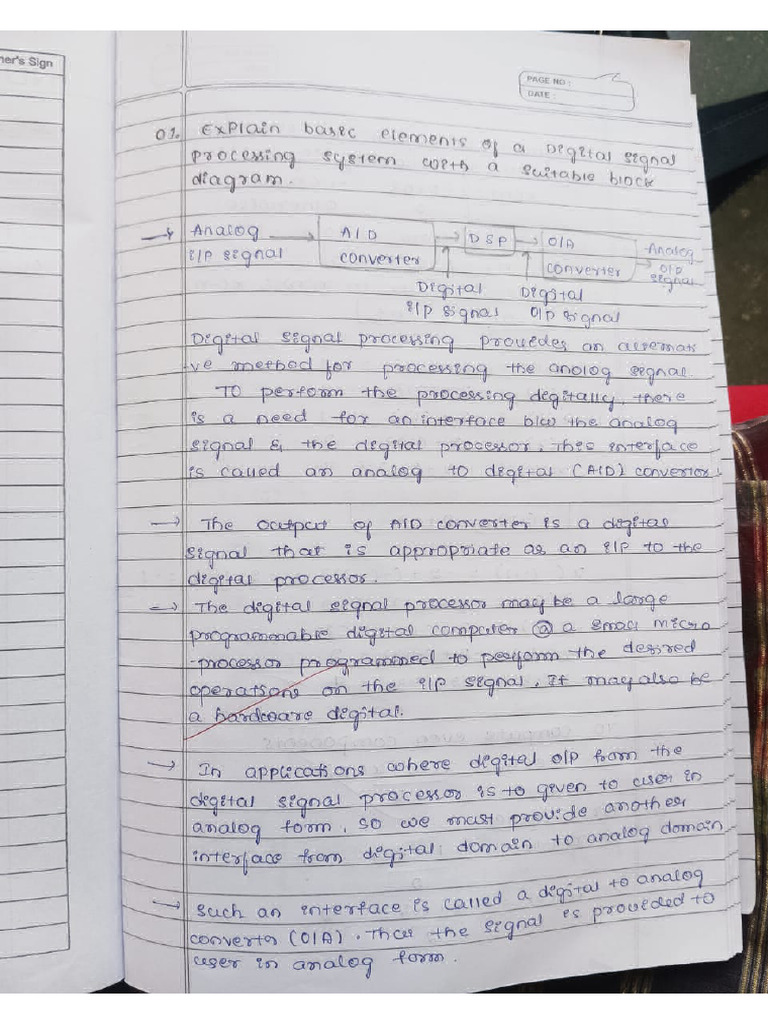 ner's Sign
PAGE NO :
DATE :
01. Explain basic elements of a Digital signal
processing system with a suitable block
diagram.
→ Analog A/D DSP D/A Analog
i/p signal converter converter O/P signal
Digital Digital
i/p signal O/P signal
Digital signal processing provides an alternati
-ve method for processing the analog signal
To perform the processing digitally, there
is a need for an interface b/w the analog
signal & the digital processor. This interface
is called an analog to digital (A/D) convertor.
→ The output of A/D converter is a digital
signal that is appropriate as an i/p to the
digital processor.
→ The digital signal processor may be a large
programmable digital computer @ a small micro
-processor programmed to perform the desired
operations on the i/p signal. It may also be
a hardware digital.
→ In applications where digital o/p from the
digital signal processor is to given to user in
analog form, so we must provide another
interface from digital domain to analog domain
→ Such an interface is called a digital to analog
converter (D/A). Thus the signal is provided to
user in analog form.